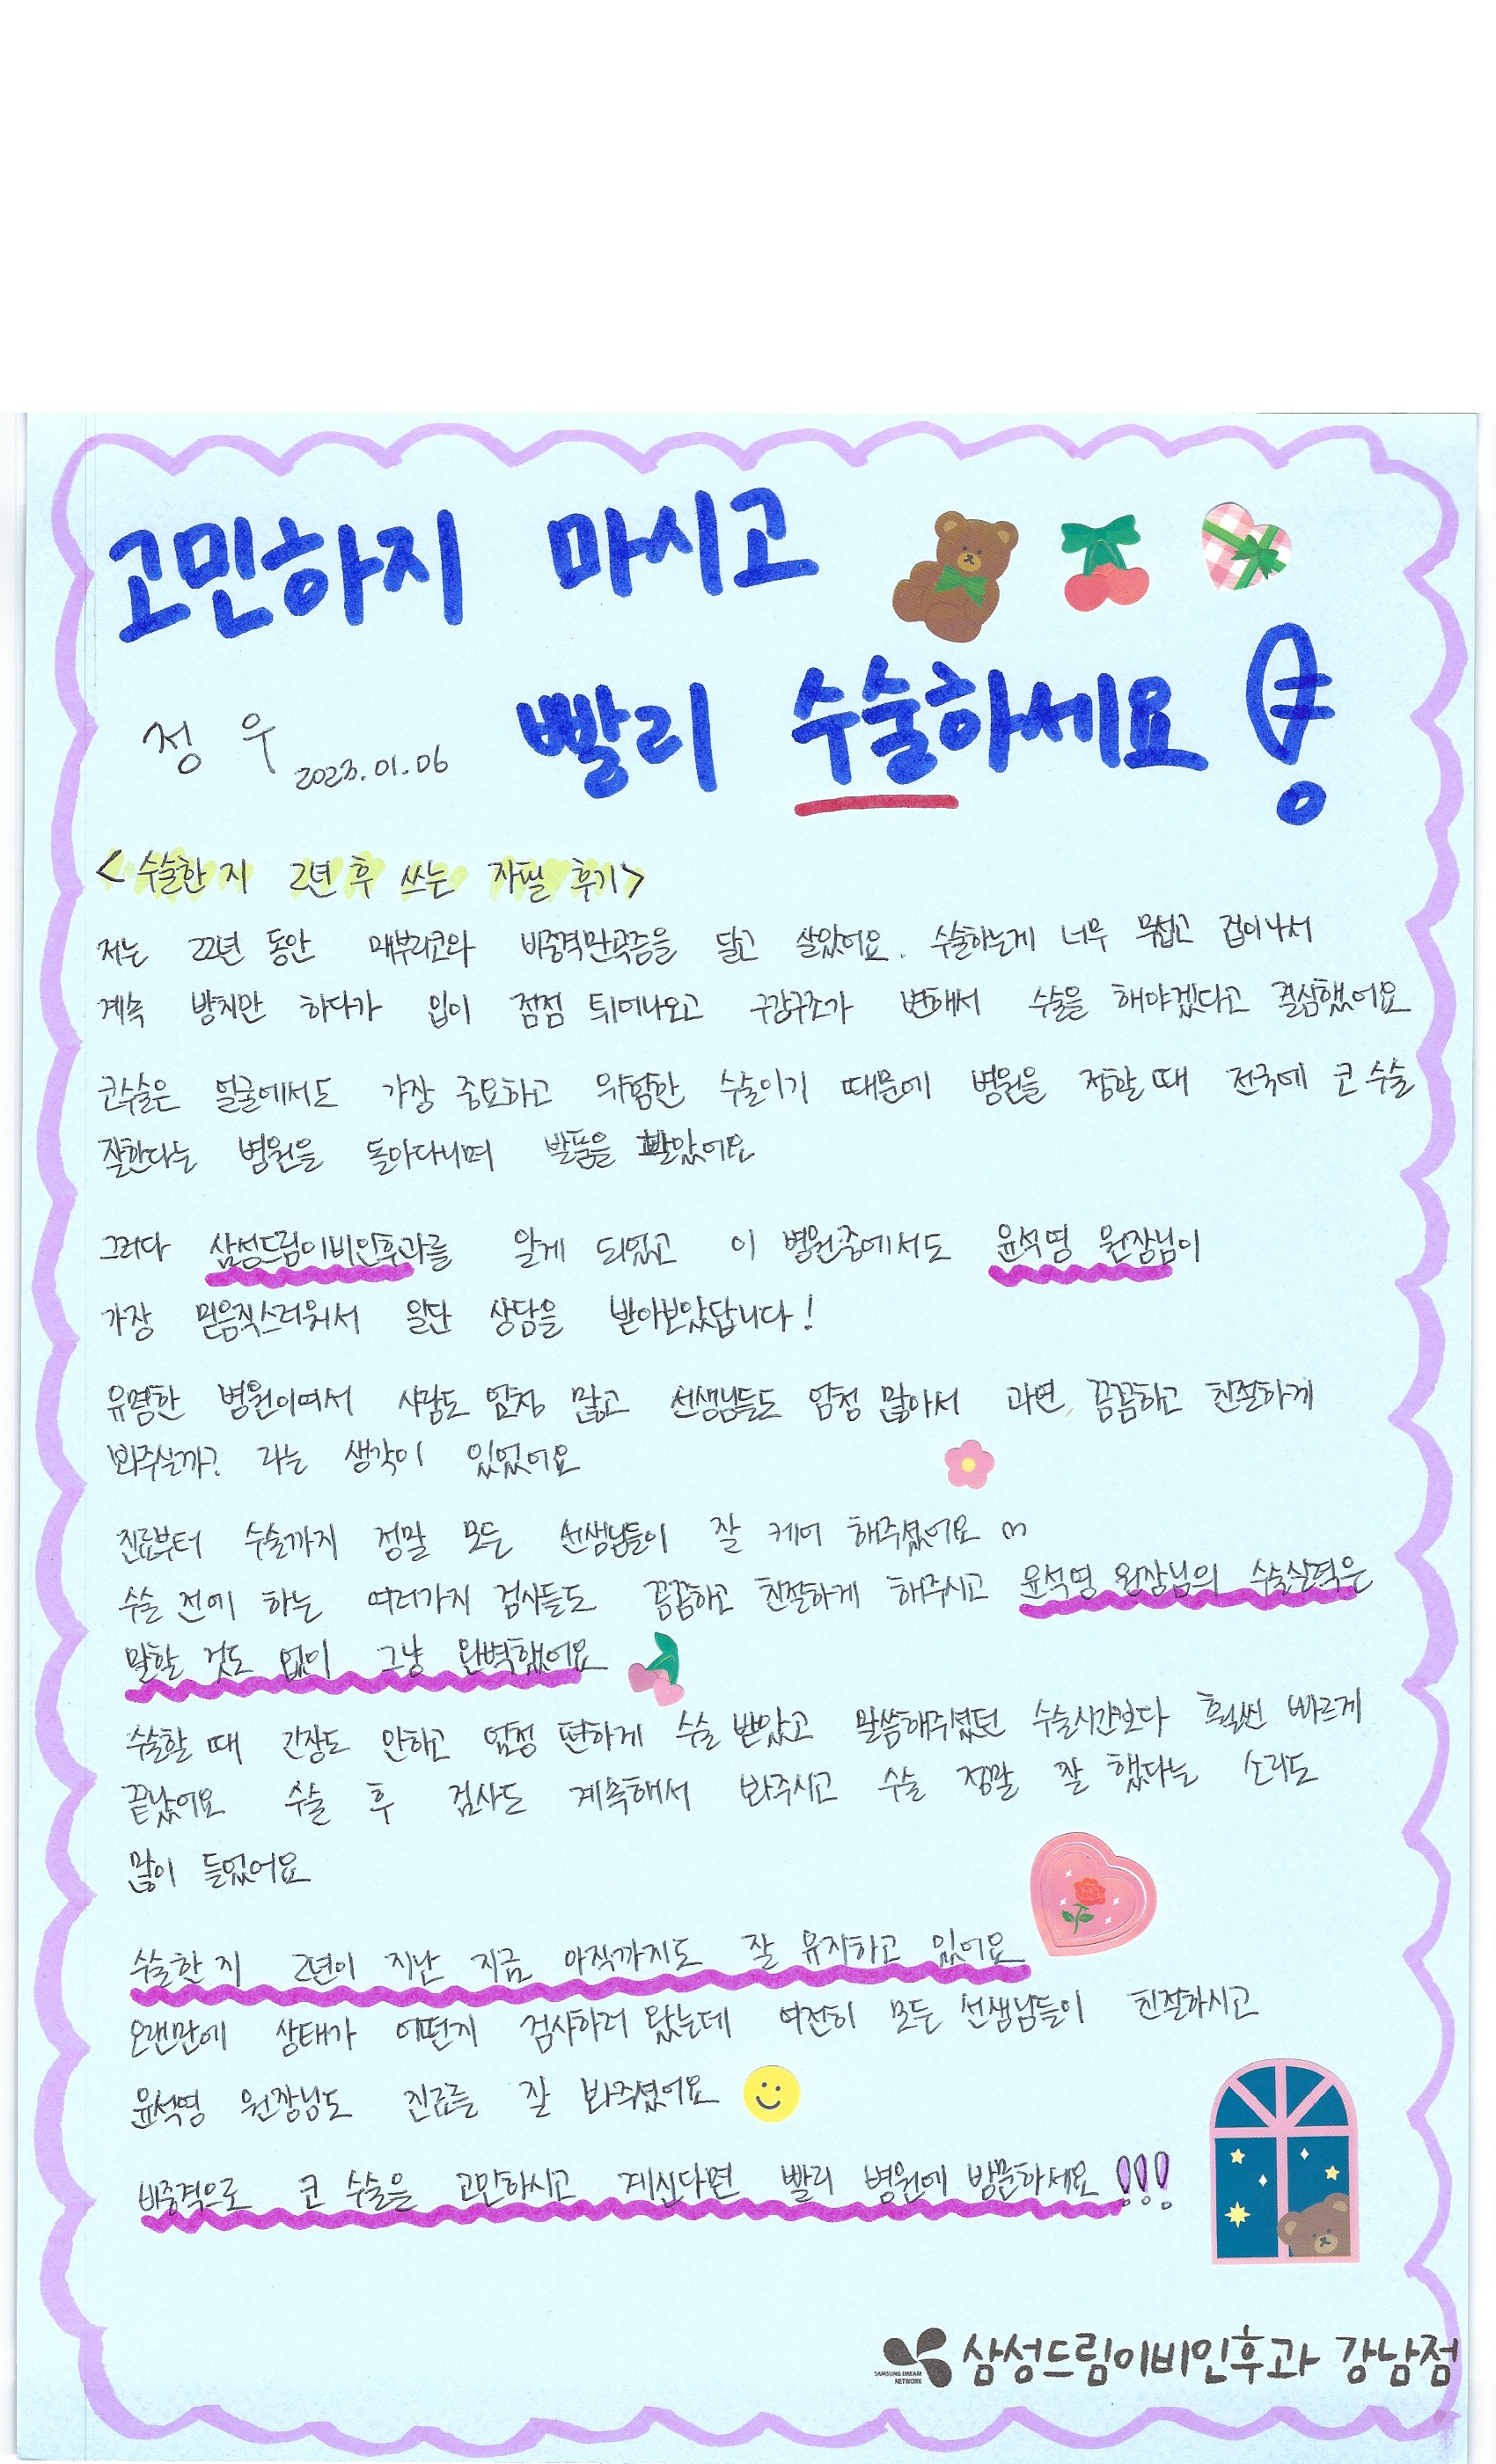 고민하지 마시고
빨리 수술하세요!
정우 2023.01.06
<수술한지 2년 후 쓰는 자필 후기>
저는 22년 동안 매부리코와 비중격만곡증을 달고 살았어요. 수술하는게 너무 무섭고 겁이나서
계속 방치만 하다가 입이 점점 튀어나오고 구강구조가 변해서 수술을 해야겠다고 결심했어요
코수술은 얼굴에서도 가장 중요하고 위험한 수술이기 때문에 병원을 정할 때 전국에 코 수술
잘한다는 병원을 돌아다니며 발품을 팔았어요
그러다 삼성드림이비인후과를 알게 되었고 이 병원중에서도 윤석영 원장님이
가장 믿음직스러워서 일단 상담을 받아보았답니다!
유명한 병원이여서 사람도 엄청 많고 선생님들도 엄청 많아서 과연 꼼꼼하고 친절하게
봐주실까? 라는 생각이 있었어요
진료부터 수술까지 정말 모든 선생님들이 잘 케어 해주셨어요
수술 전에 하는 여러가지 검사들도 꼼꼼하고 친절하게 해주시고 윤석영 원장님의 수술실력은
말할 것도 없이 그냥 완벽했어요
수술할 때 긴장도 안하고 엄청 편하게 수술 받았고 말씀해주셨던 수술시간보다 훨씬 빠르게
끝났어요 수술 후 검사도 계속해서 봐주시고 수술 정말 잘 했다는 소리도
많이 들었어요
수술한지 2년이 지난 지금 아직까지도 잘 유지하고 있어요
오랜만에 상태가 어떤지 검사하러 왔는데 여전히 모든 선생님들이 친절하시고
윤석영 원장님도 진료를 잘 봐주셨어요
비중격으로 코 수술을 고민하시고 계신다면 빨리 병원에 방문하세요!!!
SAMSUNG DREAM NETWORK 삼성드림이비인후과 강남점